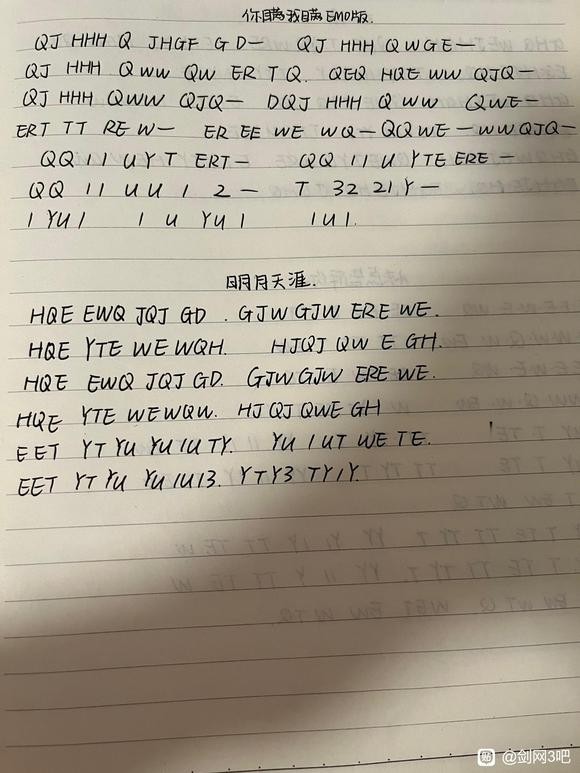 你瞒我瞒EMO版.
QJ HHH Q JHGF G D— QJ HHH QWGE—
QJ HHH QWW QW ER T Q. QEQ HQE WW QJQ—
QJ HHH QWW QJQ— DQJ HHH Q WW QWE—
ERT TT RE W— ER EE WE WQ—QQWE—WWQJQ—
QQ 11 U Y T ERT— QQ 11 U YTE ERE—
QQ 11 UU 1 2 — T 32 21 Y—
1 YU 1 1 U YU 1 1U1.
明月天涯.
HQE EWQ JQJ GD . GJW GJW ERE WE.
HQE YTE WE WQH. HJQJ QW E GH.
HQE EWQ JQJ GD. GJW GJW ERE WE.
HQE YTE WEWQW. HJQJ QWE GH
EET YT YU YU 1U TY. YU 1 UT WE TE.
EET YT YU YU 1U13. YTY3 TY1Y.
贴 @剑网3吧